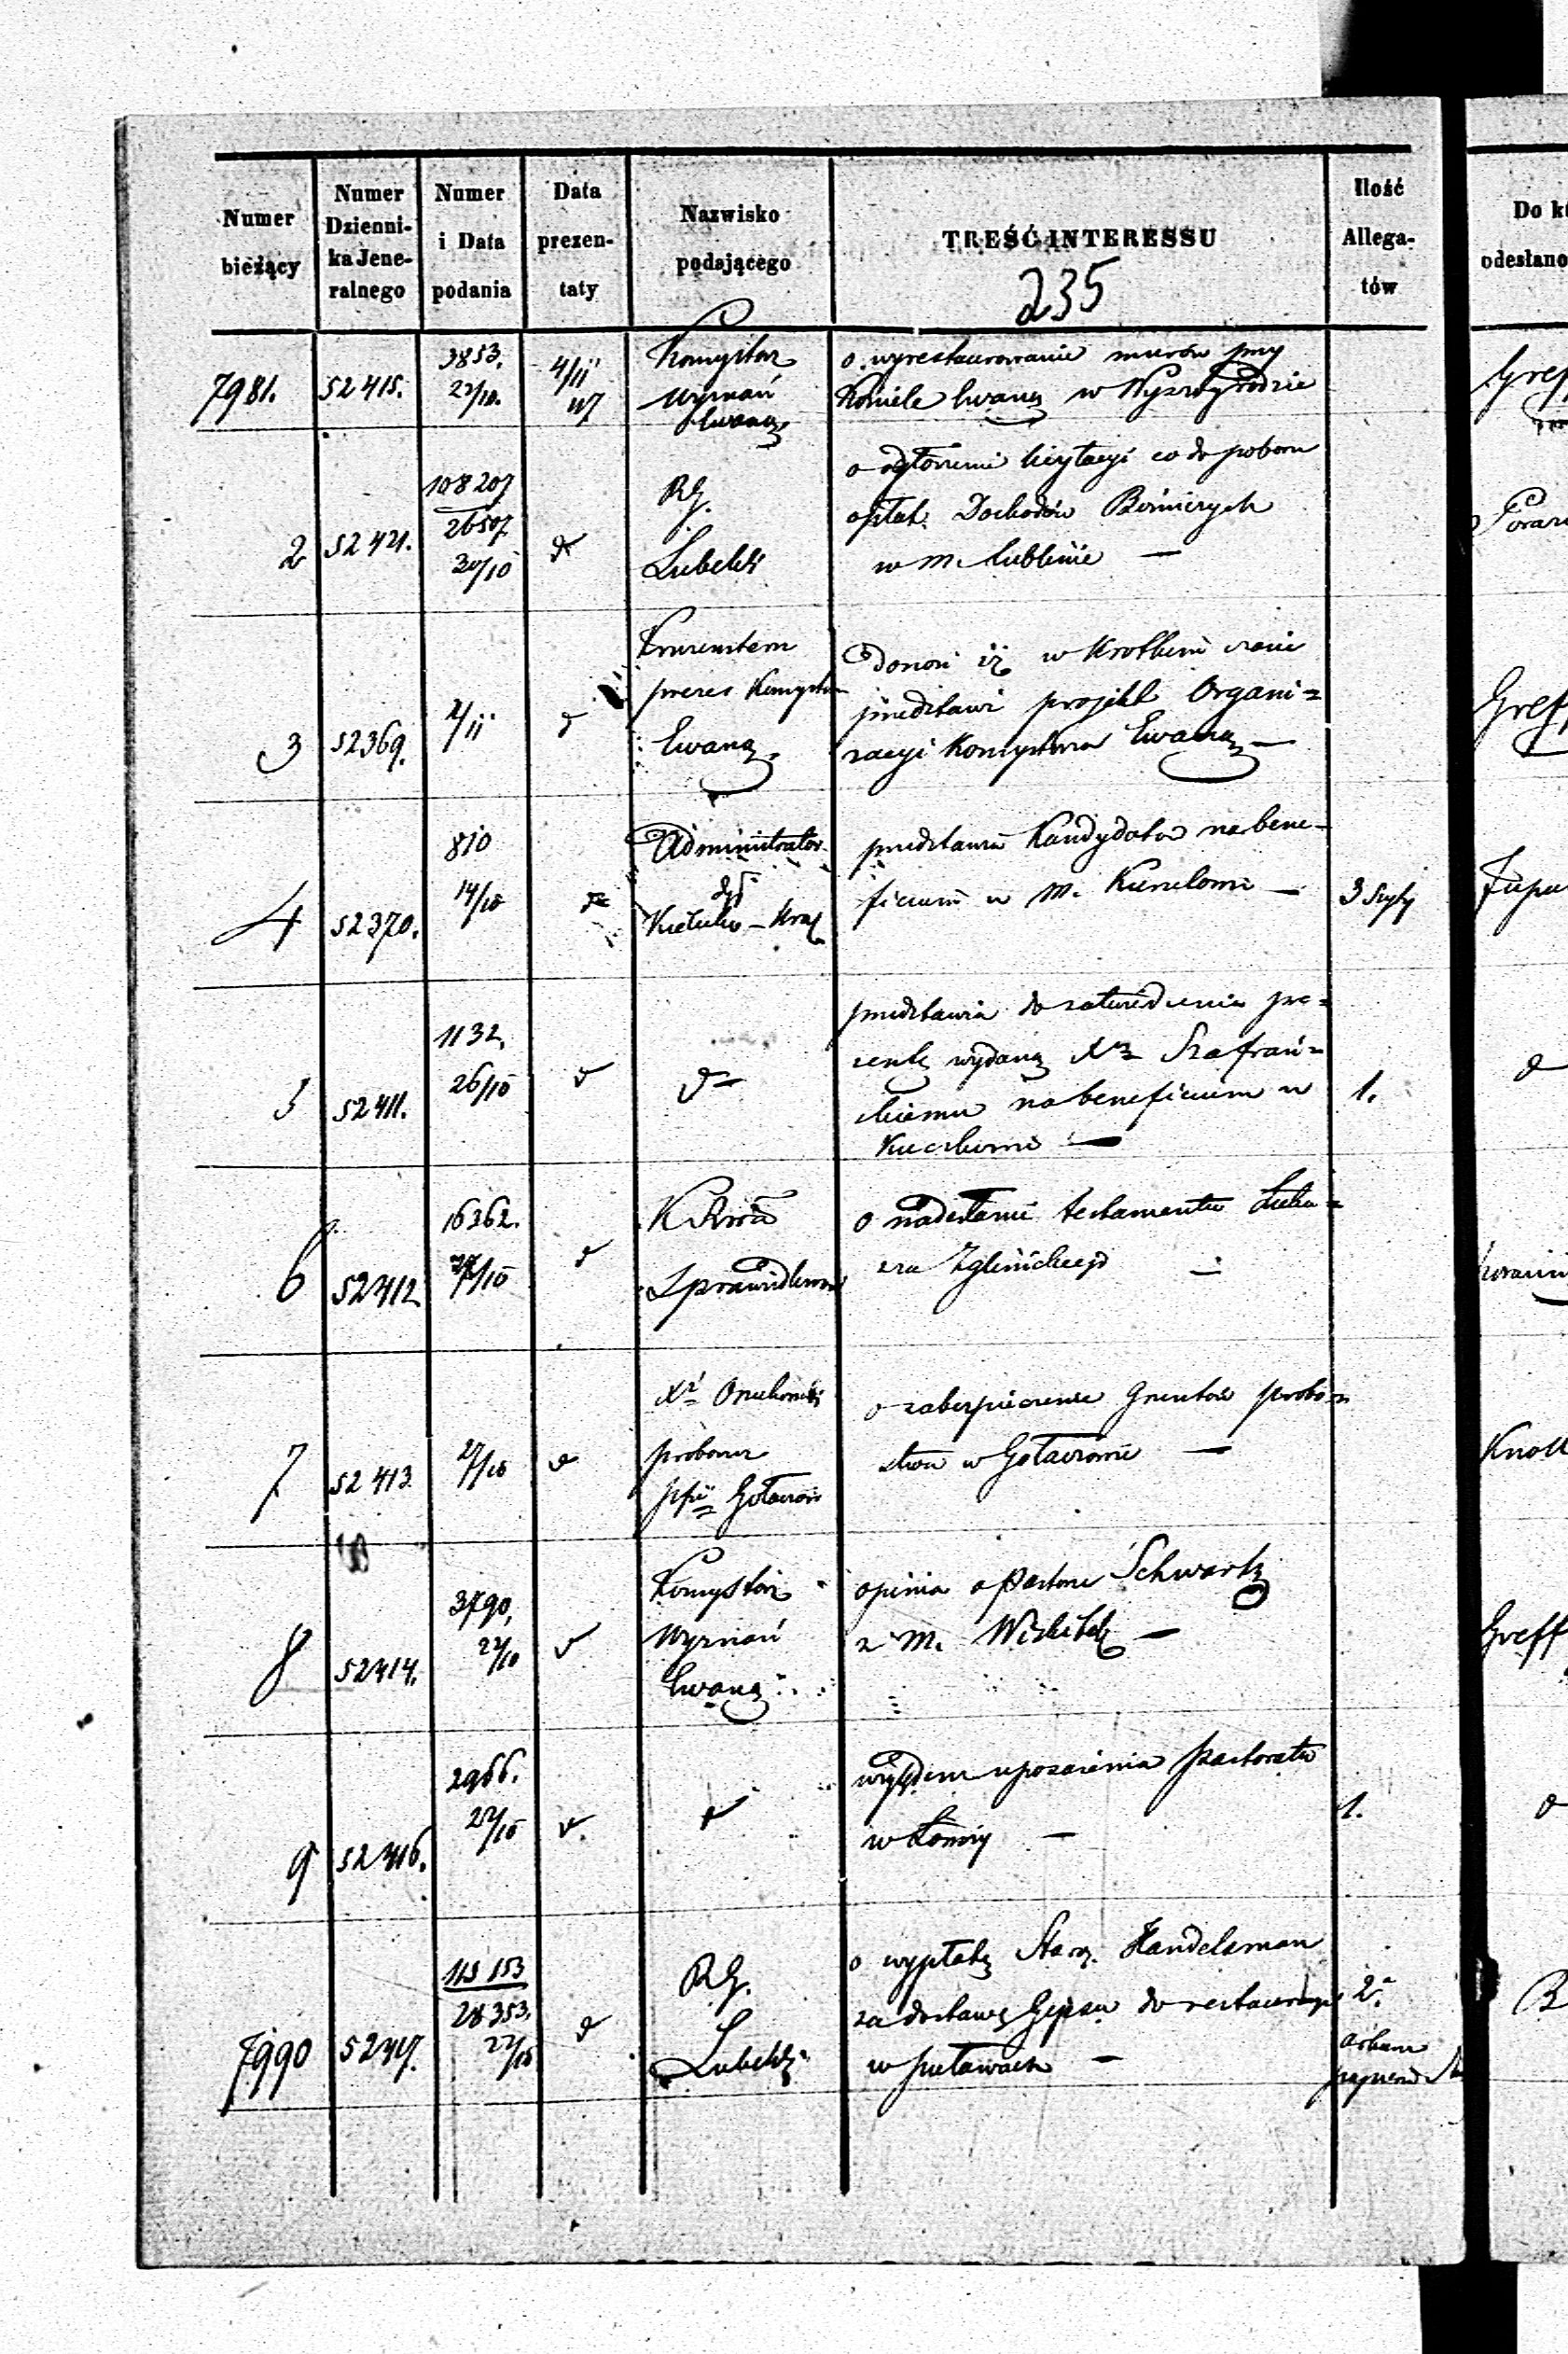 Numer bieżący
Numer Dzienni- ka Jene- ralnego
Numer i Data podania
Data prezen- taty
Nazwisko podającego
TREŚĆ INTERESSU
Ilość Allega- tów
Do kt
odesłano
235
7981. 52415. 3853. 22/10. 4/11
Konsystorz
wyznań
Ewang.
o wyrestaurowanie murów przy
Kościele Ewang w Wyszogrodzie
Greff
2 52421. 108207 26507 30/10
RG.
Lubelski
o ogłoszenie licytacyi co do poboru
opłat Dochodów Bożniczych
w m. Lublinie —
3 52369. 2/11
prezes Konsystorza
Ewang.
Donosi iż w krotkim czasie
przedstawi projekt Organi=
zacyi Konsystorza Ewang —
Greff
4 52370. 810 14/10
Administrator
Dyj
Kielecko-Krak
przedstawia Kandydatów na bene-
ficium w m. —
3 Szyty
5 52411. 1132. 26/10
przedstawia do zatwierdzenia pre=
zentę wydaną Xdz Szafrań=
skiemu na beneficium w
—
1.
6 52412 16362. /10
KRwa
Sprawiedliwości
o nadesłanie testamentu Łuka=
sza Zglinickiego —
7 52413 27/10
Xdz
proboszcz
Gołaczow
o zabezpieczenie Gruntów probo=
stwa w Gołaczowie —
Knoll
8 52414. 3790, 22/10
Konsystorz
Wyznań
Ewang
opinia o Pastorze Schwartz
z m. Wiskitek —
Greff
9 52416. 2966. 22/10
względem uposażenia Pastoratu
w Łomży —
1.
7990 52417. 115153 28353. 22/10
RG.
Lubelski
o wypłatę Staroz. Handelsman
za dostawę Gipsu do restauracyi
w Puławach —
2.